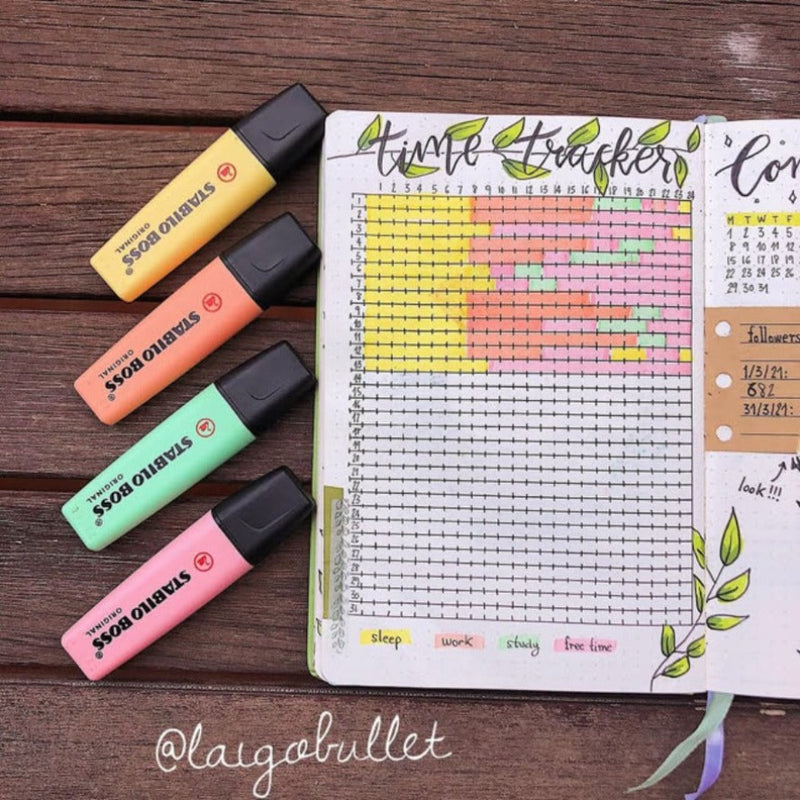 time tracker
1 2 3 4 5 6 7 8 9 10 11 12 13 14 15 16 17 18 19 20 21 22 23 24
1
2
3
4
5
6
7
8
9
10
11
12
13
14
15
16
17
18
19
20
21
22
23
24
25
26
27
28
29
30
31
sleep work study free time
M T W T F
1 2 3 4 5
8 9 10 11 12
15 16 17 18 19
22 23 24 25 26
29 30 31
followers
1/3/21:
682
31/3/21:
look!!!
STABILO BOSS®
ORIGINAL
STABILO BOSS®
ORIGINAL
STABILO BOSS®
ORIGINAL
STABILO BOSS®
ORIGINAL
@laigobullet